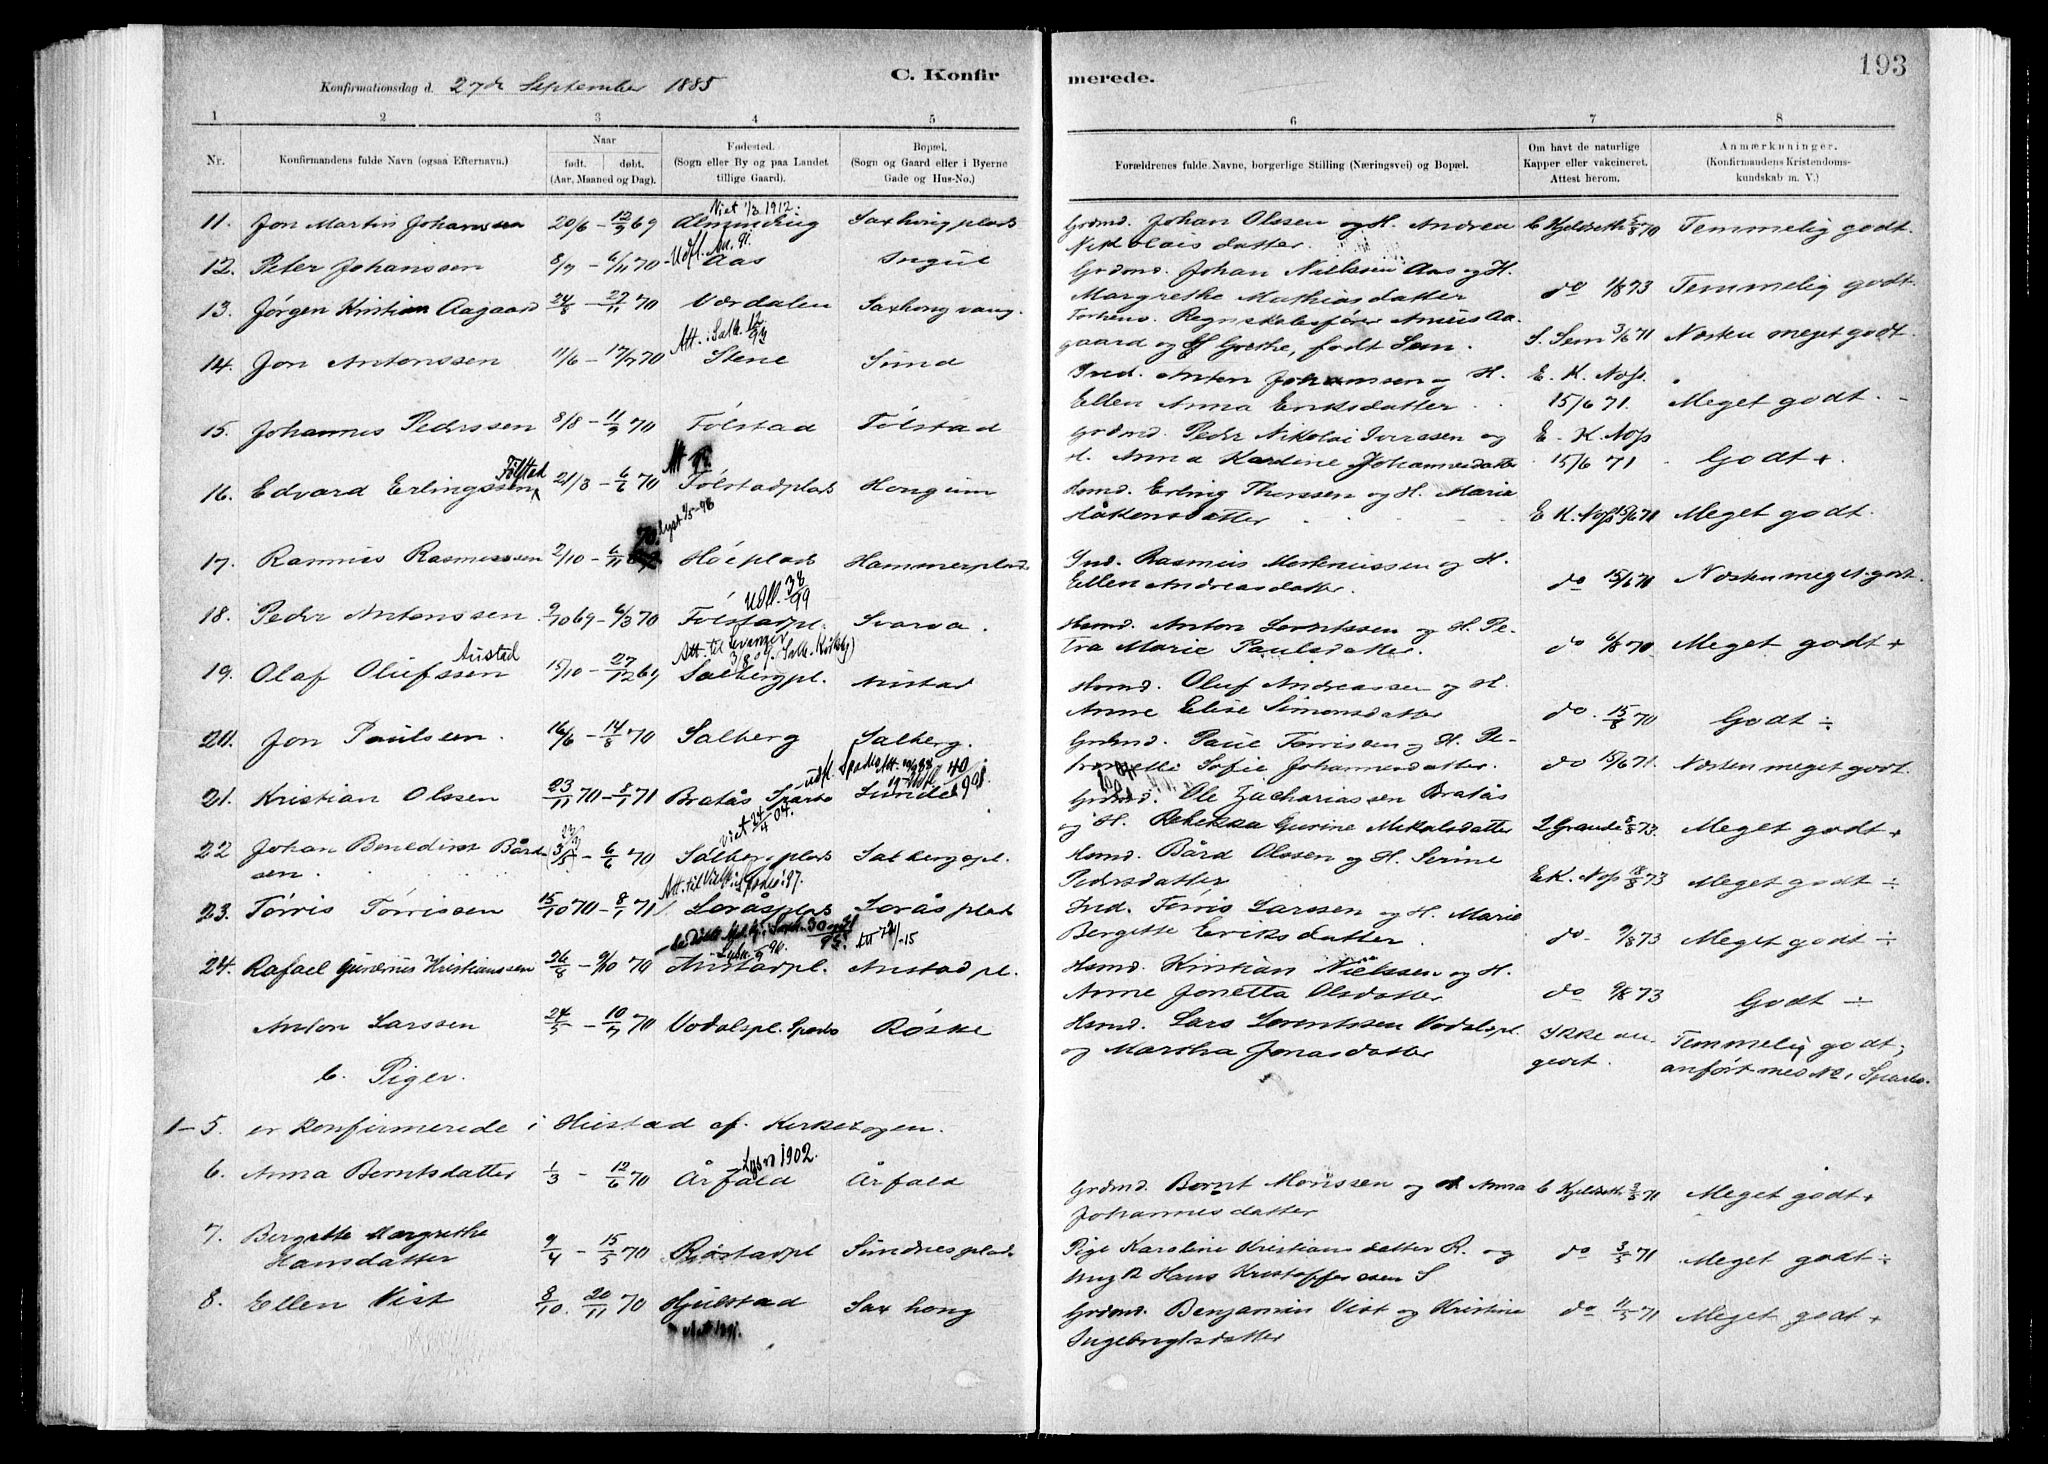 C. Konfirmerede.
193
Konfirmationsdag d. 27de September 1885
1 2 3 4 5 6 7 8
Nr.
Konfirmandens fulde Navn (ogsaa Efternavn.)
Naar
født. døbt.
(Aar, Maaned og Dag).
Fødested.
(Sogn eller By og paa Landet
tillige Gaard).
Bopæl.
(Sogn og Gaard eller i Byerne
Gade og Hus-No.)
Forældrenes fulde Navne, borgerlige Stilling (Næringsvei) og Bopæl.
Om havt de naturlige
Kapper eller vakcineret.
Attest herom.
Anmærkninger.
(Konfirmandens Kristendoms-
kundskab m. V.)
Viet 1/3 1912:
11. Jon Martin Johanssen 20/6 – 12/9 69 Almenning Saxhougplads
Grdmd. Johan Olssen og H. Andrea
Nikolaisdatter. C Kjeldseth 5/8 70 Temmelig godt.
Udfl. An. 91.
12. Peter Johanssen 8/9 – 6/11 70 Aas
Grdmd. Johan Nielssen Aas og H.
Margrethe Mathiasdatter do 9/8 73 Temmelig godt.
13. Jørgen Kristian Aagaard 24/8 – 27/11 70 Værdalen Saxhougvang.
Forhenv. Regnskabsfører Anius Aa-
gaard og H Grethe, født Sem. S. Sem 3/6 71 Næsten meget godt.
Att. i Salb. 12/93
14. Jon Antonssen 11/6 – 17/7 70 Stene Sund
Ind. Anton Johanssen og H. E. K. Nops.
Ellen Anna Eriksdatter 15/6 71. Meget godt.
15. Johannes Pederssen 8/8 – 11/9 70 Følstad Følstad
Grdmd. Peder Nikolai Iverssen og E. K. Nops
H. Anna Kardine Johannesdatter 15/6 71 Godt +
Følstad
16. Edvard Erlingssen 21/3 – 6/6 70 Følstadplads Hongum
Husmd. Erling Thorssen og H. Maria
Håkensdatter E K. Nops 15/6 71 Meget godt.
Lyst 3/5-96
17. Rasmus Rasmussen 2/10 – 6/11 Høeplads Hammerplads
Ind. Rasmus Markussen og H.
Ellen Andreasdatter. do 15/6 71 Næsten meget godt.
Udfl. 38/99
18. Peder Antonssen 9/10 69 – 6/3 70 Følstadpl. Svarva.
Husmd. Anton Lorntssen og H. Pe-
tra Marie Paulsdatter. do 9/8 70 Meget godt +
Att. til Levanger
Austad
19. Olaf Olufssen 15/10 – 27/12 69 Salbergpl. Austad
Husmd. Oluf Andreassen og H.
Anne Elise Simonsdatter do. 15/8 70 Godt ÷
20. Jon Paulssen. 16/6 – 14/8 70 Salberg Salberg.
Grdmd. Paul Tørrissen og H. Pe-
tronelle Sofie Johannesdatter. do 15/6 71. Næsten meget godt.
21. Kristian Olssen 23/11 70 – 8/1 71 Bratås Sparbo
Grdmd. Ole Zachariassen Bratås
og H. Rebekka Gurine Mikalsdatter 2 Grande 8/8 73. Meget godt +
Viet 24/4 04.
22 Johan Benedikt Bårds-
sen. – 6/6 70 Salbergplads Salbergpl.
Husmd. Bård Olssen og H. Serine
Pedersdatter EK. Nops 18/8 73 Meget godt ÷
23. Tørris Tørrissen 15/10 70 – 8/1 71 Loråsplads Loråsplads
Ind. Tørris Larssen og H. Marie
Bergitte Eriksdatter. do 9/8 73 Meget godt ÷
24. Rafael Gunerius Kristianssen 26/8 – 9/10 70 Austadpl. Austadpl.
Husmd. Kristian Nielssen og H.
Anne Jonetta Olsdatter do 9/8 73 Godt ÷
Anton Larssen 24/5 – 10/7 70 Vodalspl. Sparbo Røske
Husmd. Lars Lorentssen Vodalspl.
og Martha Jonasdatter Ikke an-
givet. Temmelig godt;
anført med Nr 1 Sparbo.
b. Piger.
1–5. er konfirmerede i Hustad af Kirkesogen.
Lyst 1902.
6. Anna Berntsdatter 1/3 – 12/6 70 Årfald Årfald
Grdmd. Bernt Monssen og H Anna
Johannesdatter C Kjeldseth 3/5 71 Meget godt +
7. Bergitte Margrethe
Hansdatter 9/4 – 15/5 70 Røstadpl Sundnesplads
Pige Karoline Kristiansdatter R. og
Ungk Hans Kristofferssen S do 3/5 71 Meget godt ÷
8. Ellen Vist 8/10. 20/11 70 Hjulstad Saxhong
Grdmd. Benjamin Vist og Kristine
Ingebrigtsdatter do 11/5 71 Meget godt +